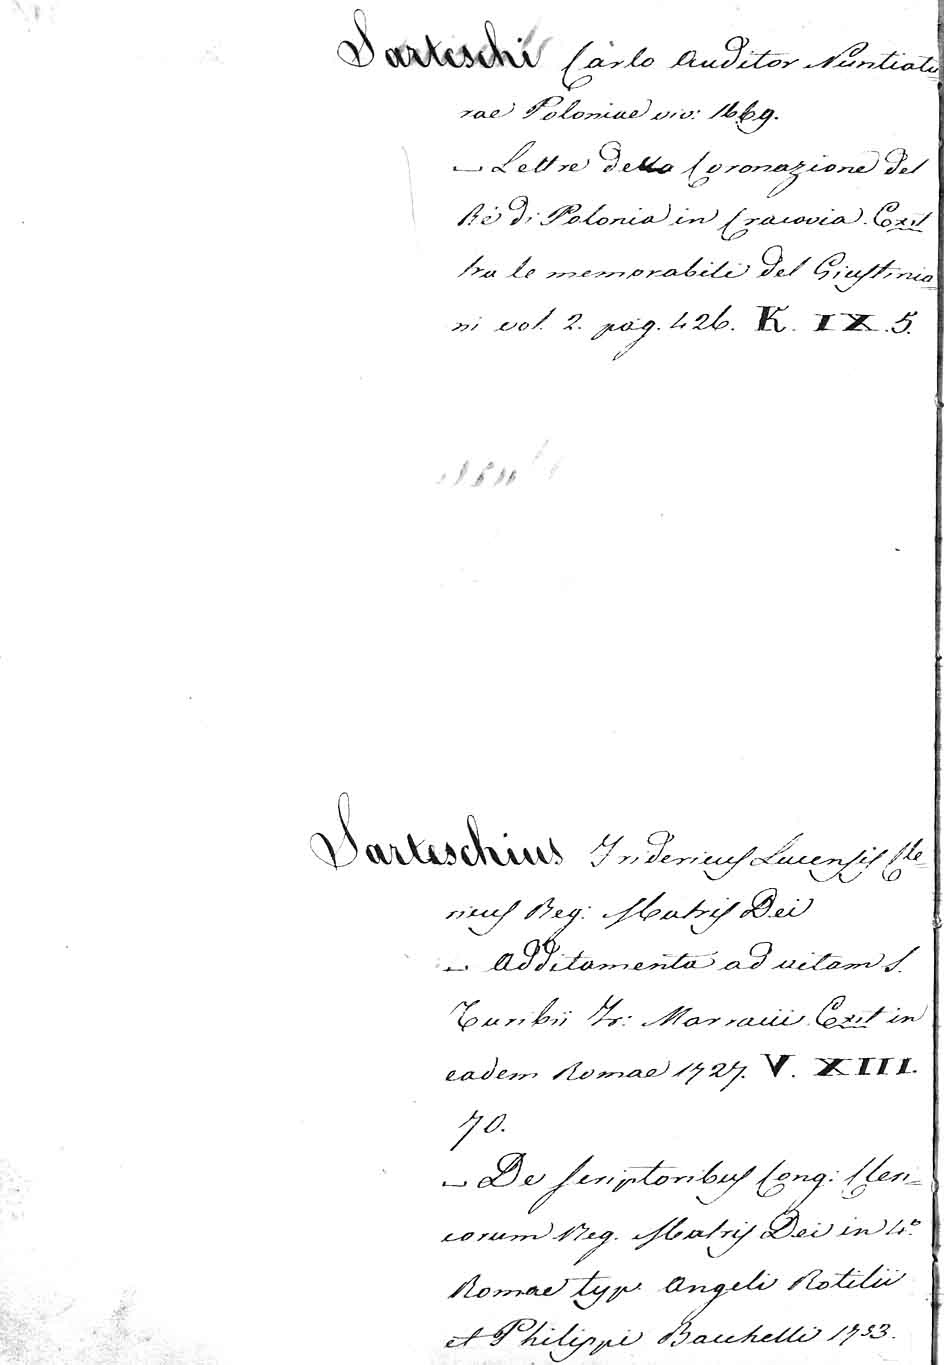 Sarteschi Carlo Auditor Nuntiatu=
rae Poloniae viv: 1669.
– Lettre della Coronazione del
Rè di Polonia in Cracovia. Exit
tra le memorabili del Giustinia=
ni vol. 2. pag. 426. K. IX. 5.
Sarteschius Fridericus Lucensis Cle=
ricus Reg: Matris Dei
– Additamenta ad vitam S.
Turibii Fr: Marracii. Exit in
eadem Romae 1727. V. XIII.
70.
– De scriptoribus Cong: Cleri=
corum Reg. Matris Dei in 4º
Romae typ. Angeli Rotilii
et Philippi Bacchelli 1753.